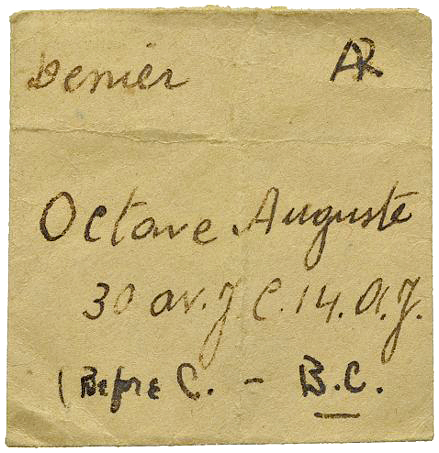 Denier AR
Octave Auguste
30 av. J. C. 14. A. J.
(Before C. - B.C.